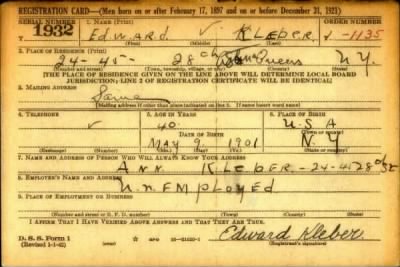 REGISTRATION CARD—(Men born on or after February 17, 1897 and on or before December 31, 1921)
SERIAL NUMBER 1. NAME (Print) ORDER NUMBER
1932 Edward KLEBER 1135
(First) (Middle) (Last)
2. PLACE OF RESIDENCE (Print)
24-45- 28 Queens N.Y.
(Number and street) (Town, township, village, or city) (County) (State)
[THE PLACE OF RESIDENCE GIVEN ON THE LINE ABOVE WILL DETERMINE LOCAL BOARD
JURISDICTION; LINE 2 OF REGISTRATION CERTIFICATE WILL BE IDENTICAL]
3. MAILING ADDRESS
Same
[Mailing address if other than place indicated on line 2. If same insert word same]
4. TELEPHONE 5. AGE IN YEARS 6. PLACE OF BIRTH
40 U S A
DATE OF BIRTH (Town or county)
MAY 9 1901 N.Y.
(Mo.) (Day) (Yr.) (State or country)
7. NAME AND ADDRESS OF PERSON WHO WILL ALWAYS KNOW YOUR ADDRESS
ANN KLEBER-24-45 28 St
8. EMPLOYER'S NAME AND ADDRESS
UNEMPLOYED
9. PLACE OF EMPLOYMENT OR BUSINESS
(Number and street or R. F. D. number) (Town) (County) (State)
I AFFIRM THAT I HAVE VERIFIED ABOVE ANSWERS AND THAT THEY ARE TRUE.
D. S. S. Form 1
(Revised 1-1-42) GPO 16-21630-1 Edward Kleber
(Registrant's signature)